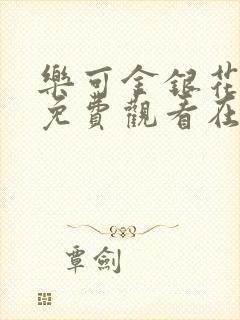 樂可金銀花
免費觀看在
覃劍